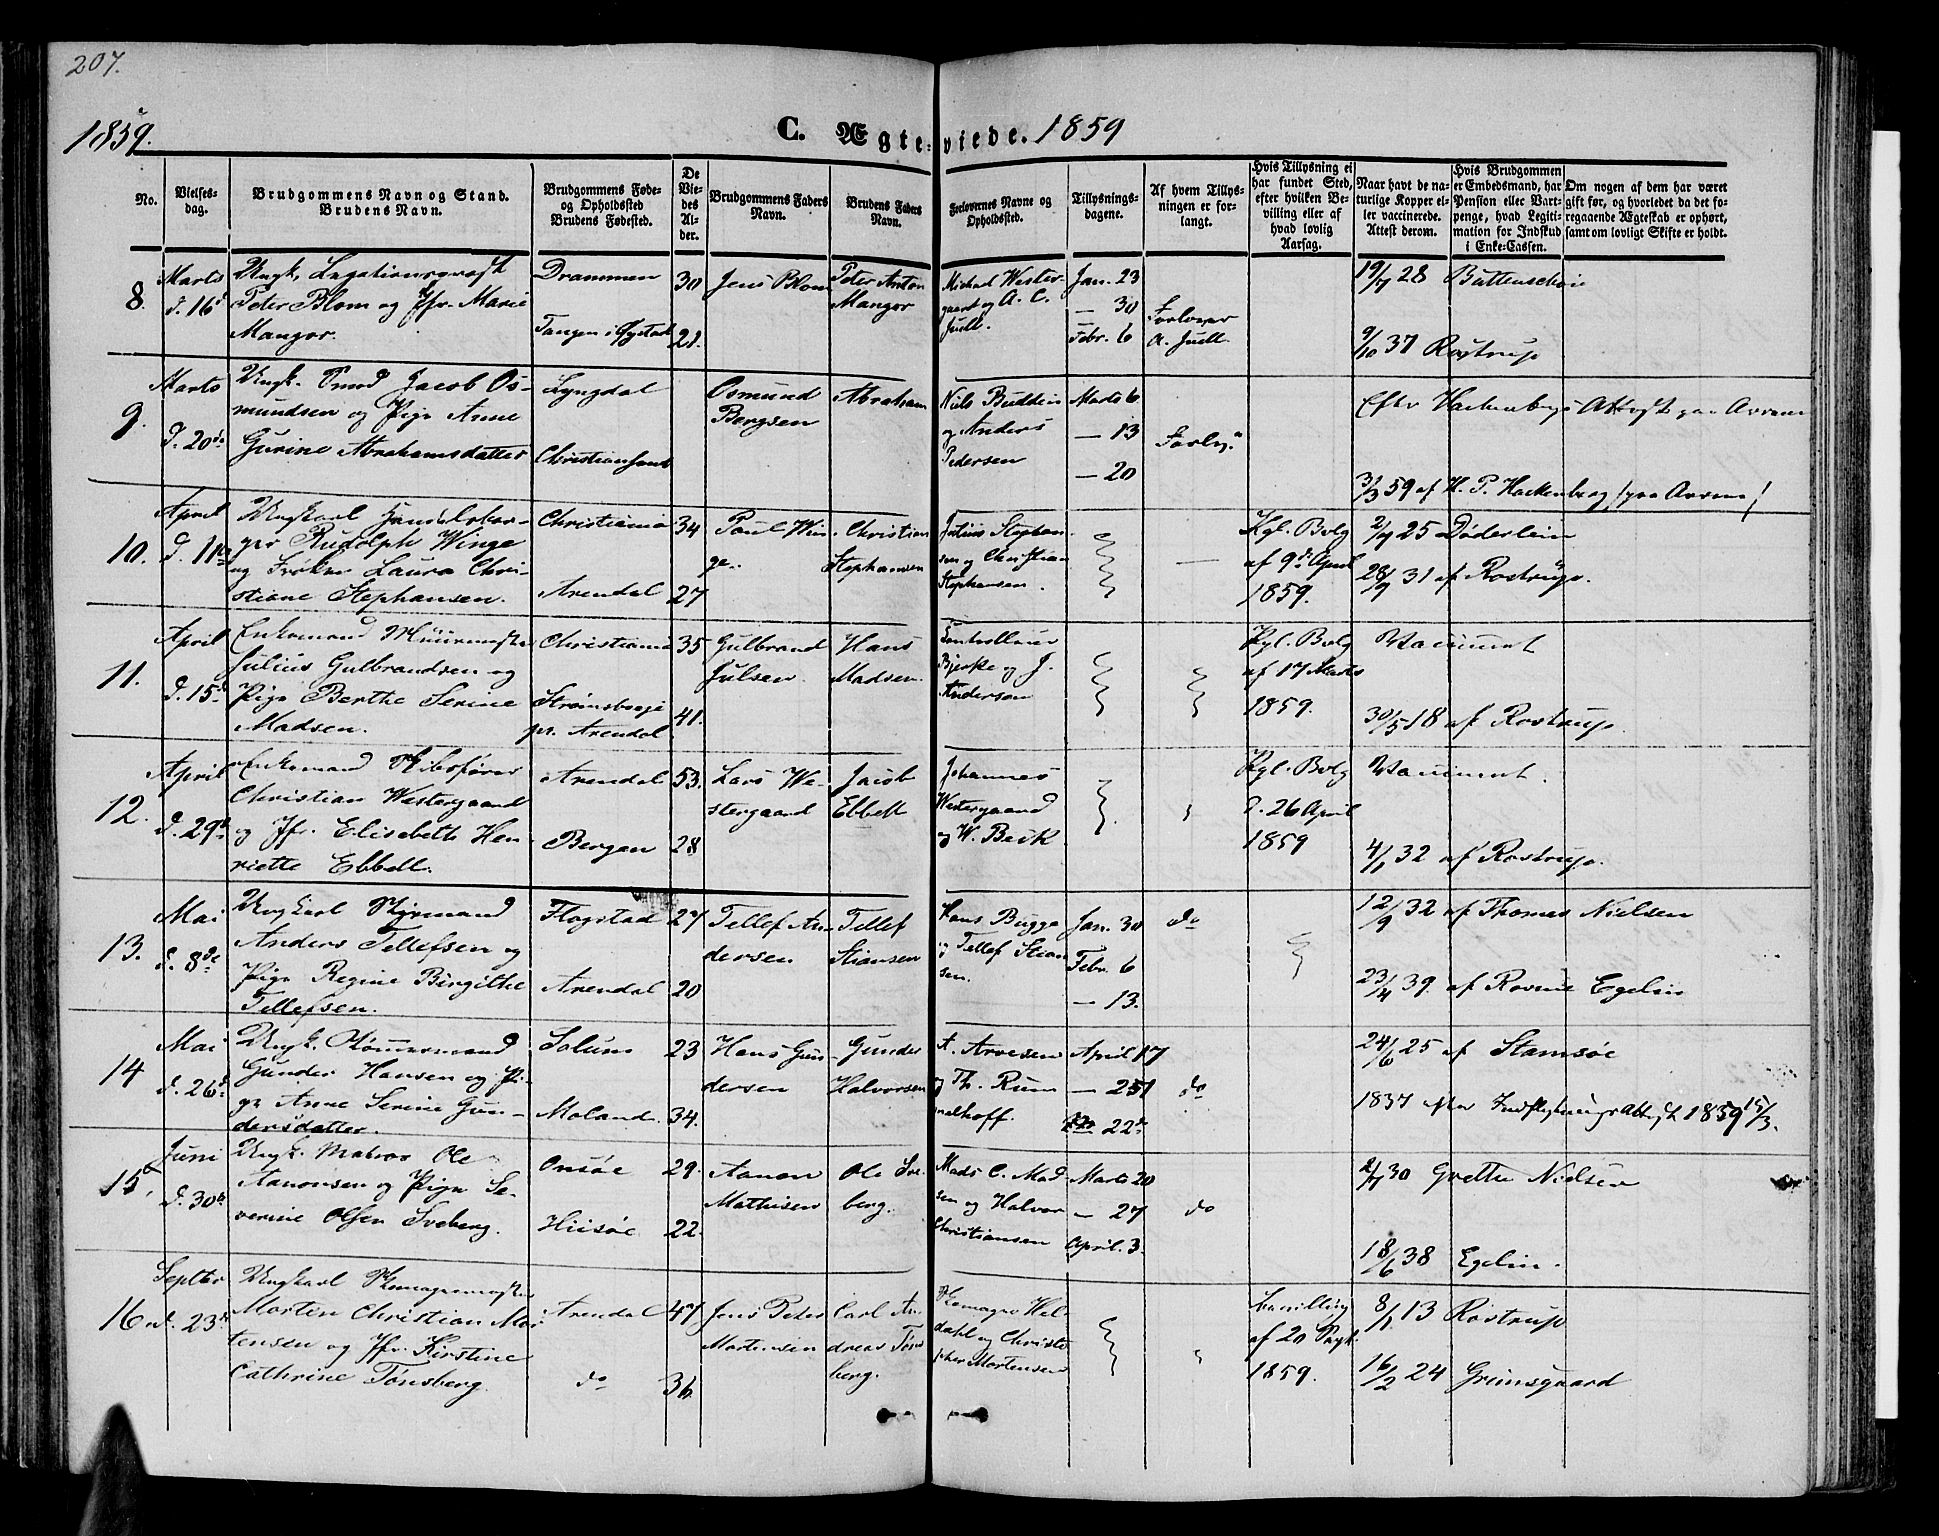 207.
1859.
C. Ægteviede. 1859
No.
Vielses-
dag.
Brudgommens Navn og Stand.
Brudens Navn.
Brudgommens Føde-
og Opholdssted
Brudens Fødested.
De
Vie-
des
Al-
der.
Brudgommens Faders
Navn.
Brudens Faders
Navn.
Forlovernes Navne og
Opholdssted.
Tillysnings-
dagene.
Af hvem Tillys-
ningen er for-
langt.
Hvis Tillysning ei
har fundet Sted,
efter hvilken Be-
villing eller af
hvad lovlig
Aarsag.
Naar havt de na-
turlige Kopper el-
ler vaccinerede.
Attest derom.
Hvis Brudgommen
er Embedsmand, har
Pension eller Vart-
penge, hvad Legiti-
mation for Indskud
i Enke-Cassen.
Om nogen af dem har været
gift før, og hvorledet da det fo-
regaaende Ægteskab er ophørt,
samt om lovligt Skifte er holdt.
8.
Marts
d. 16d
Ungk.
Peter Blom og Jfr. Marie
Mangor.
Drammen
Tangen i Øjestad
30
21.
Jens Blom
Peter Anton
Mangor
Michael Wester-
gaard og A. C.
Juell.
Jan. 23
— 30
Febr. 6
Forlover
A. Juell.
19/7 28 Buttenschøn
9/10 37 Rostrup
9.
Marts
d. 20de
Ungk. Smed Jacob Os-
mundsen og Pige Anne
Gurine Abrahamsdatter
Lyngdal
Christiansand
Osmund
Bergsen
Abraham
Niels Budden
og Anders
Pedersen
Marts 6
— 13
— 20
Forlov.
Efter Hackenbergs Attest
3/3 59 af H. P. Hackenberg
10.
April
d. 11te
Ungkarl Handelsbor-
ger Rudolph Winge
og Frøken Laura Chri-
stiane Stephansen.
Christiania
Arendal
34
27
Paul Win-
ge.
Christian
Stephansen
Julius Stephan-
sen og Christian
Stephansen.
—
Kgl. Bvlg
af 9d April
1859.
2/7 25 Døderlein
28/9 31 af Rostrup.
11.
April
d. 15d
Enkemand Muurmester
Julius Gulbrandsen og
Pige Berthe Serine
Madsen.
Christiania
Strømsboeje
pr. Arendal
35
41.
Gulbrand
Julsen.
Hans
Madsen.
Controlleur
Bjerke og J.
Andersen
Kgl. Bvlg
af 17 Marts
1859.
Vaccineret
30/5 18 af Rostrup.
12.
April
d. 29d
Enkemand Skibsfører
Christian Westergaard
og Jfr. Elisabeth Hen-
riette Ebbell.
Arendal
Bergen
53.
28
Lars We-
stergaard
Jacob
Ebbell
Johannes
Westergaard
og W. Beck
Kgl. Bvlg
d. 26 April
1859
Vaccineret.
4/1 32 af Rostrup.
13.
Mai
d. 8de
Ungkarl Styrmand
Anders Tellefsen og
Pige Regine Birgithe
Tellefsen.
Flagstad
Arendal
27
20
Tellef An-
dersen
Tellef
Stiansen
Hans Bugge
og Tellef Stian-
sen.
Jan. 30
Febr. 6
— 13.
do
12/9 32 af Thomas Nielsen
23/4 39. af Egelin
14
Mai
d. 26d
Ungk. Tømmermand
Gunder Hansen og Pi-
ge Anne Serine Gun-
dersdatter.
Solum
Moland.
23
34.
Hans Gun-
dersen
Gunder
Halvorsen
A. Arvesen
og Th. Rum-
melhoff.
April 17
— 25
22d
do
24/6 25 af Stamsøe
1837 efter Indflytningsattest 1859 15/3.
15.
Juni
d. 30d
Ungk. Matros Ole
Aanonsen og Pige Se-
verine Olsen Sveberg.
Onsøe
Hiisøe
29.
22.
Aanon
Mathisen
Ole Sve-
berg.
Mads C. Mad-
sen og Halvor
Christiansen
Marts 20
— 27
April. 3.
do
2/7 30 Grethe Nielsen
18/6 38 Egelin.
16
Septbr
d. 23d
Ungkarl Skomagermester
Morten Christian Mor-
tensen og Jfr. Kirstine
Cathrine Tønsberg.
Arendal
do
47
36
Jens Peter
Mortensen
Carl An-
dreas Tøns-
berg.
Skomager Hel-
dahl og Christo-
pher Mortensen
Bevilling
af 20
1859.
8/1 13 Rostrup
16/2 24 Grimsgaard